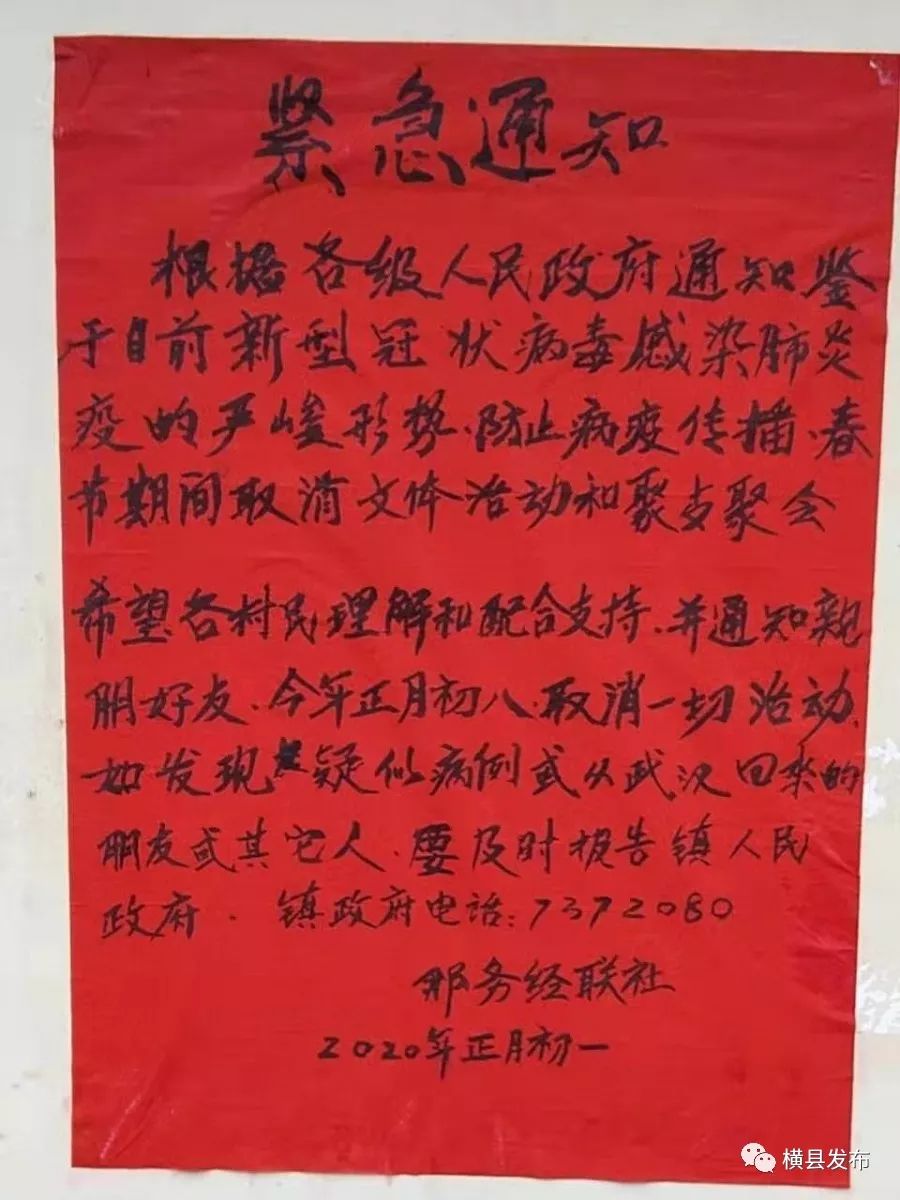 紧急通知
根据各级人民政府通知鉴
于目前新型冠状病毒感染肺炎
疫的严峻形势、防止病疫传播、春
节期间取消文体活动和聚支聚会
希望各村民理解和配合支持、并通知亲
朋好友、今年正月初八、取消一切活动、
如发现疑似病例或从武汉回来的
朋友或其它人、要及时报告镇人民
政府. 镇政府电话:7372080
那务经联社
2020年正月初一
横县发布